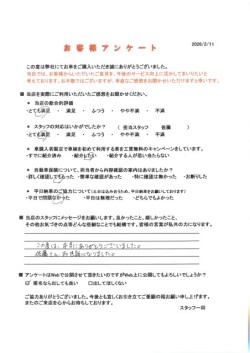 2020/2/11
お客様アンケート
この度は弊社にてお車をご購入いただき誠にありがとうございました。
当店では、お客様からいただいたご意見を、今後のサービス向上に活かしてまいりたいと
考えております。お手数ではございますが、率直なご感想をお聞かせいただけますと幸いです。
■ 当店を実際にご利用いただいたご感想をお聞かせください。
* 当店の総合的評価
・とても満足 ・満足 ・ふつう ・やや不満 ・不満
* スタッフの対応はいかがでしたか? (担当スタッフ 佐藤 )
・とても満足 ・満足 ・ふつう ・やや不満 ・不満
* ご購入者様限定で車検を初めて利用する車を工賃無料のキャンペーンをしています。
・すでに紹介済み ・紹介したい ・紹介する人が思い当たらない
* 自動車保険について、担当者から内容確認の案内はありましたか?
・詳しく確認してもらった ・簡単な確認があった ・特に無かった ・他社で契約したい
* 平日納車のご協力について
・平日で問題なかった ・できれば土日が良かった ・とても不満
■ 当店のスタッフにメッセージをお願いします。良かったこと、嬉しかったこと、
その他お気づきの点等どんな些細なことでも結構です。皆様の言葉が私共の力になります。
この度は、本当にありがとうございました。
佐藤さん、お世話になりました。
■ アンケートはWebで公開させて頂きたいのですがWeb上に公開してもよろしいでしょうか?
☑ 匿名なら出しても良い □ 出してほしくない
ご協力ありがとうございました。今後とも宜しくお引き立てご愛顧の程お願い申し上げます。
またのご来店を心からお待ちしております。
スタッフ一同